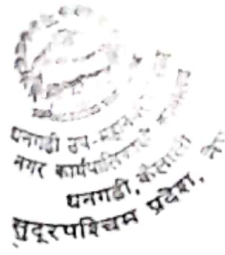 धनगढी उप-महानगर
नगर कार्यपालिकाको
धनगढी, कैलाली
सुदूरपश्चिम प्रदेश, ने